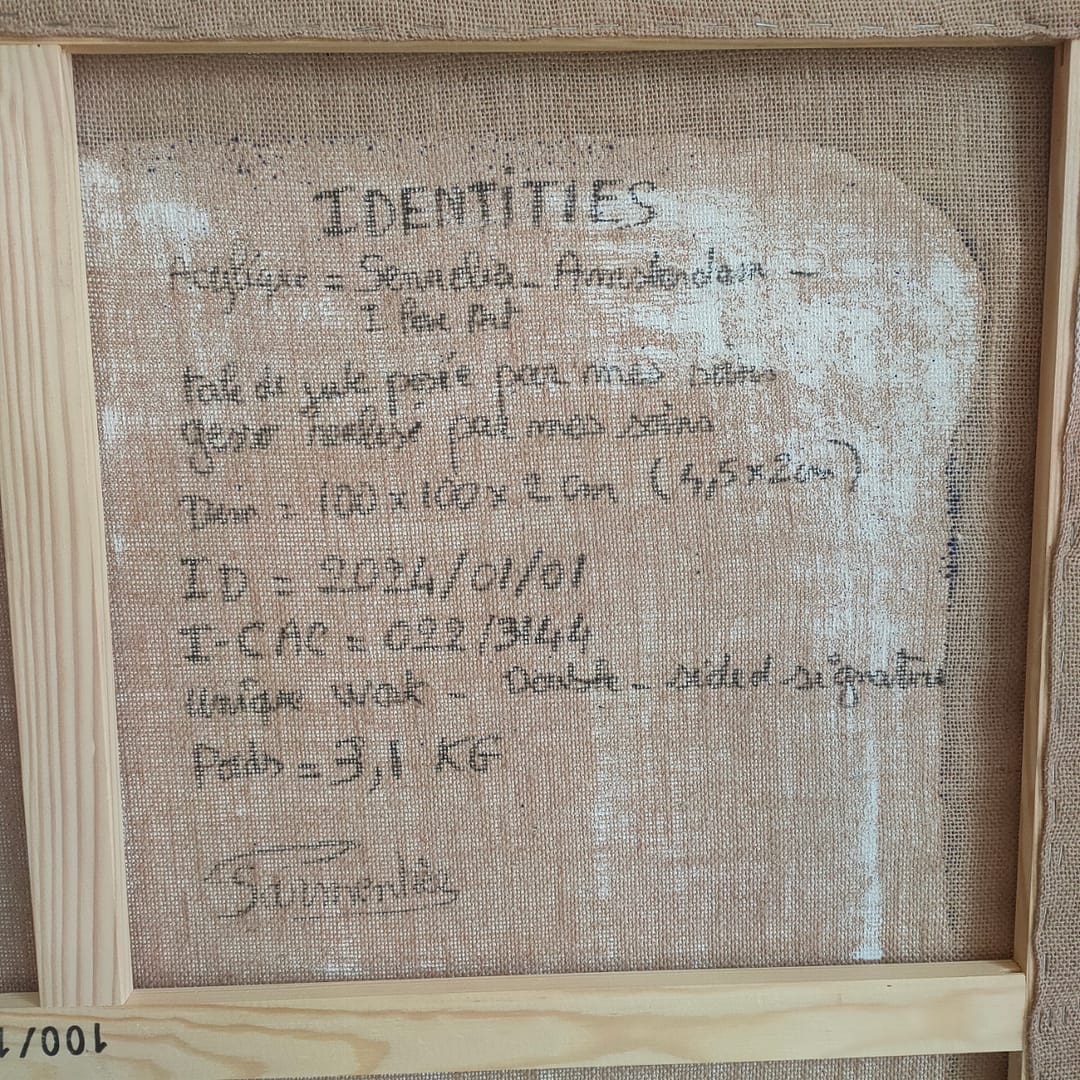 IDENTITIES
Acrylique = Sennelier - Amsterdam -
I Love Art
toile de jute posée par mes soins
gesso réalisé par mes soins
Dim = 100 x 100 x 2 cm (4,5 x 2 cm)
ID = 2024/01/01
I-CAC = 022/3144
Unique work - Double - sided signature
Poids = 3,1 KG
100/1